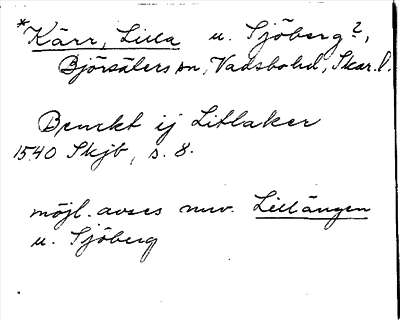 *Kärr, Lilla u. Sjöberg?,
Björsäters sn, Vadsbo hd, Skar. l.
Bruckt ij Litlaker
1540 Skjb, s. 8.
möjl. avses nuv. Lillängen
u. Sjöberg